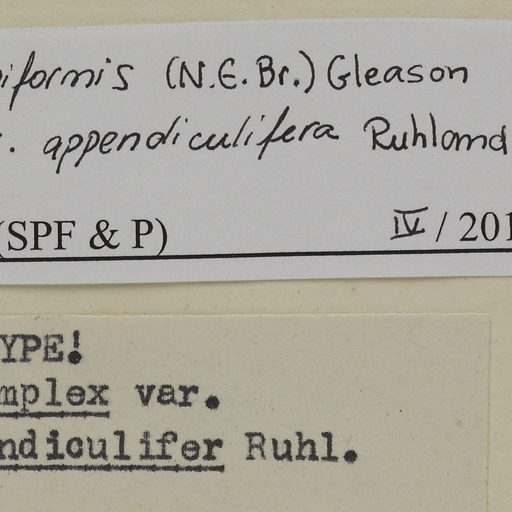 iformis (N.E.Br.) Gleason
. appendiculifera Ruhland
(SPF & P) IV / 201
YPE!
mplex var.
ndiculifer Ruhl.